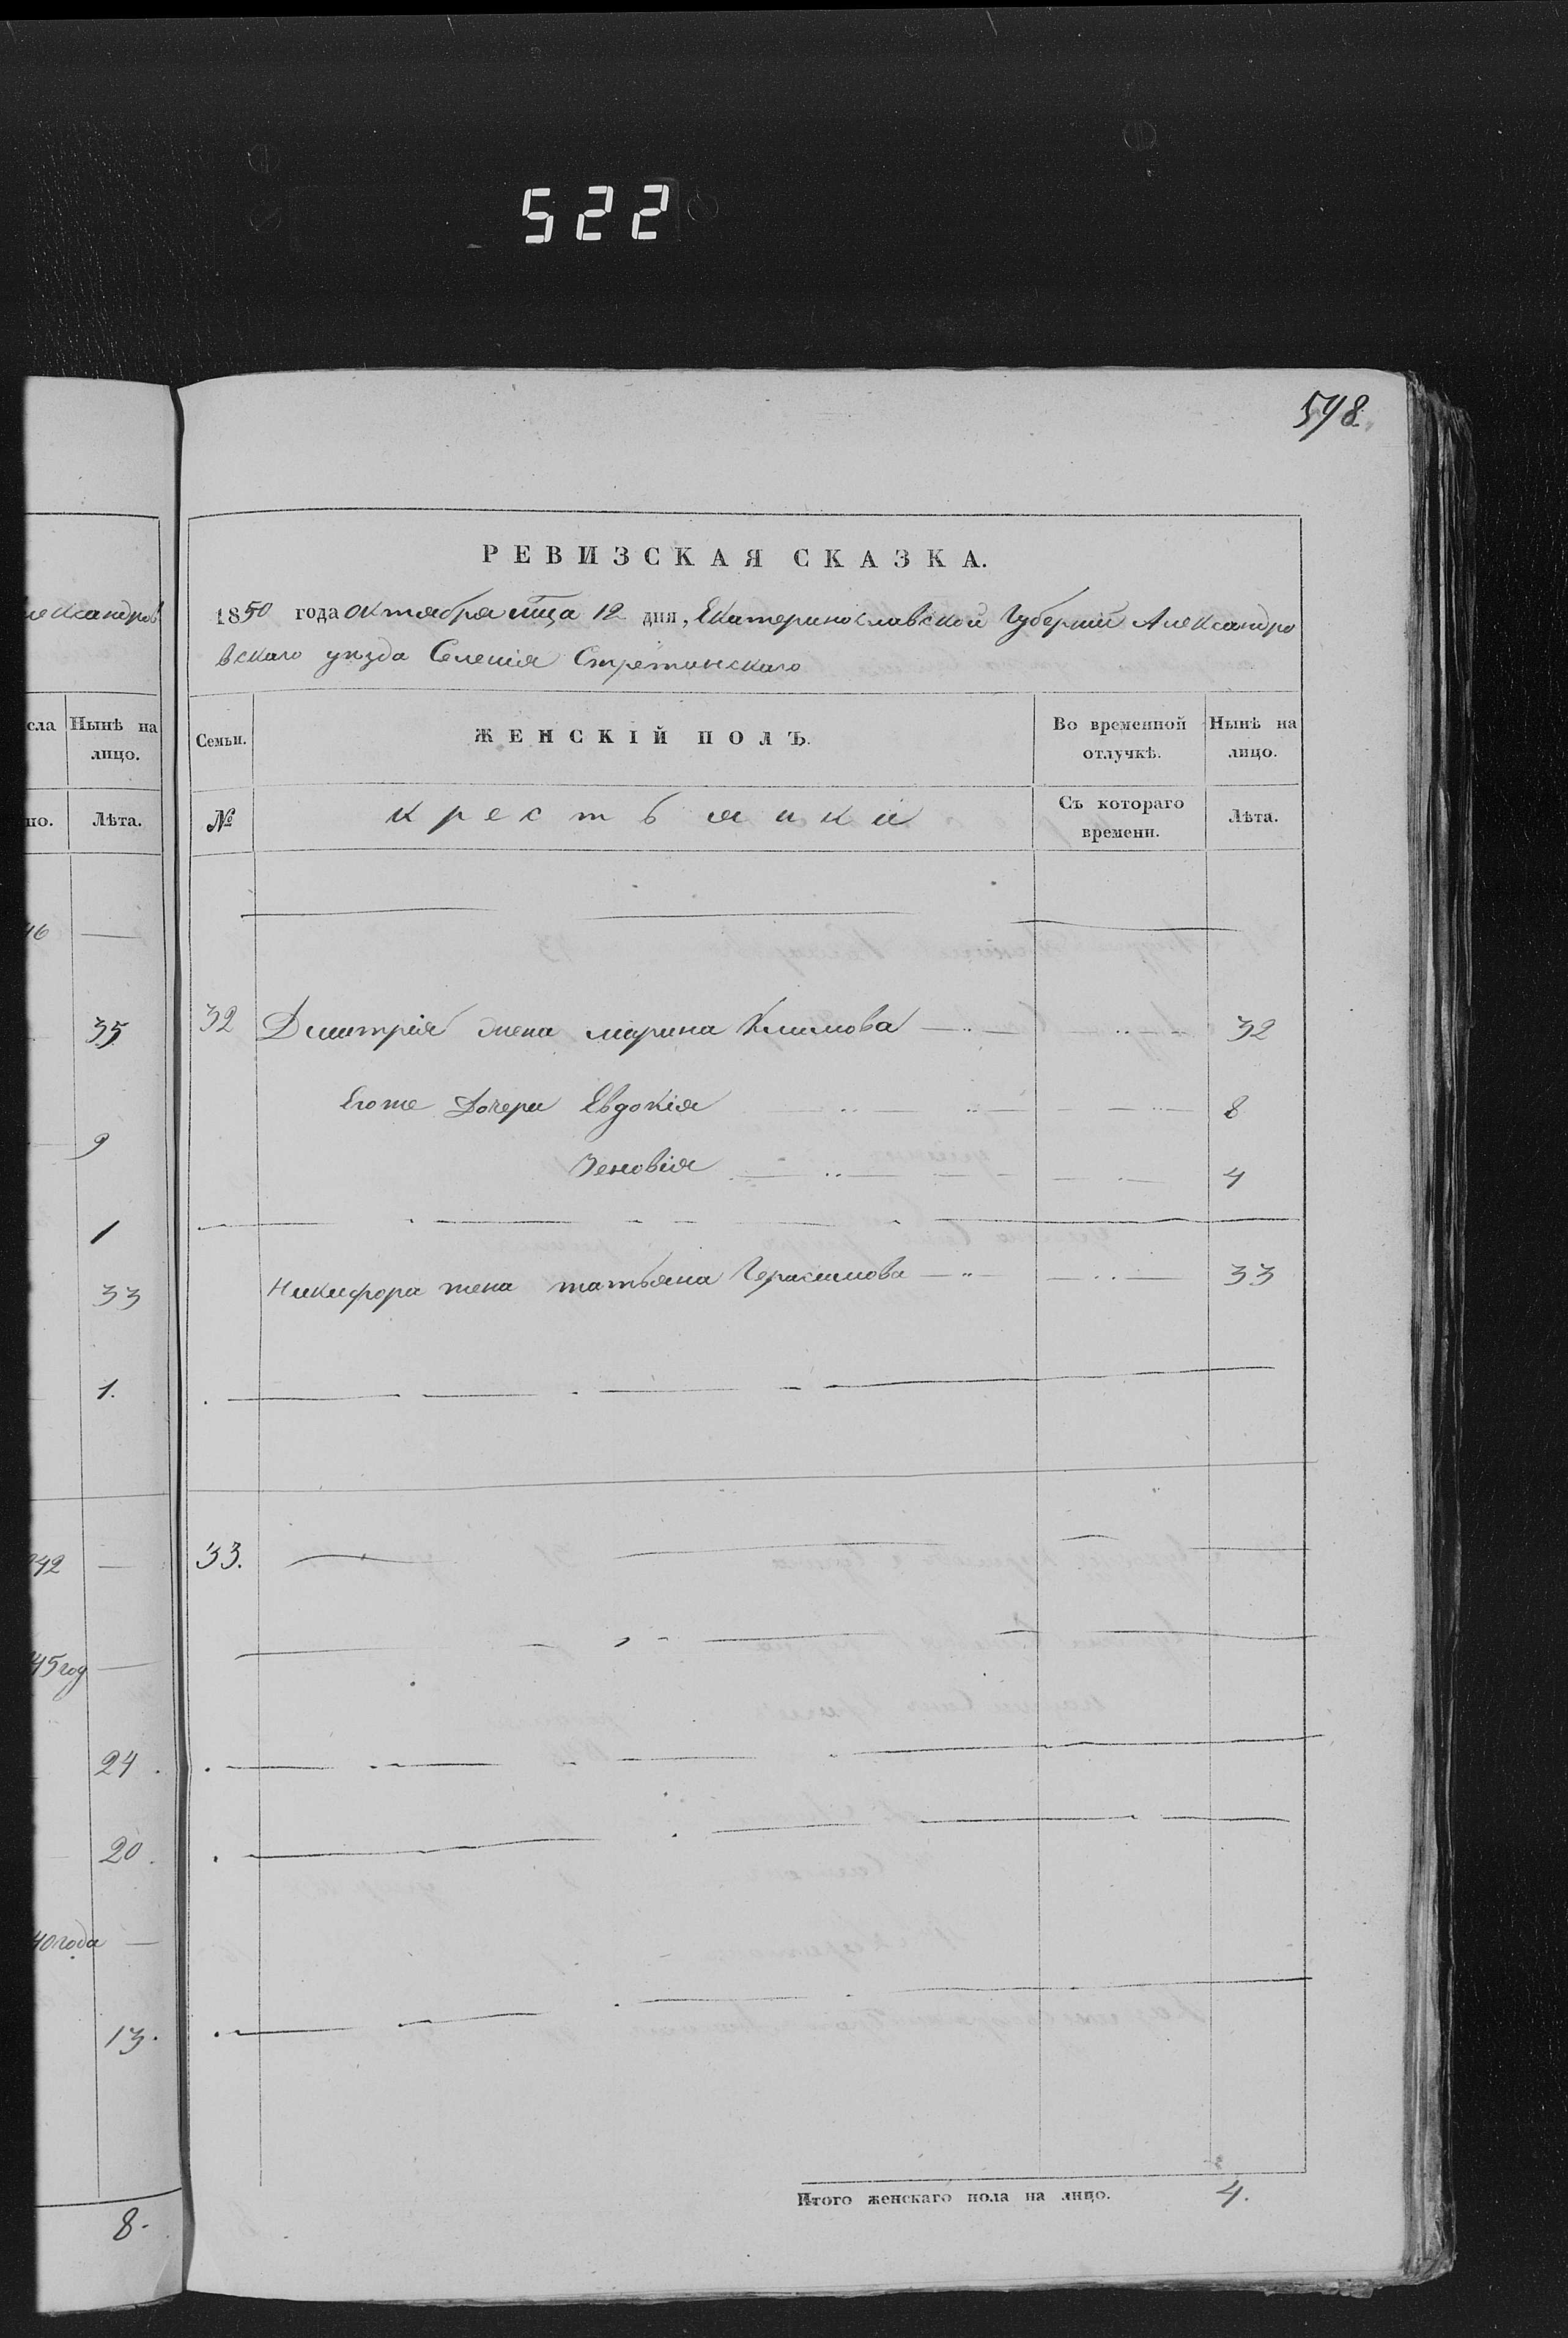 522
598.
лександров
сла Нынѣ на лицо.
но. Лѣта.
46 —
35
9
1
33
1.
42 —
45 год —
24.
20.
40 года —
13.
8.
РЕВИЗСКАЯ СКАЗКА.
1850 года октября мца 12 дня, Екатеринославской Губерніи Александро
вскаго уезда Селенія Стретинскаго
Семьи. ЖЕНСКІЙ ПОЛЪ. Во временной отлучкѣ. Нынѣ на лицо.
№ крестьянки Съ котораго времени. Лѣта.
32 Дмитрія жена марина Климова 32
Егоже Дочери Евдокія 8
Зеновія 4
Никифора жена татьяна Герасимова 33
33.
Итого женскаго пола на лицо. 4.